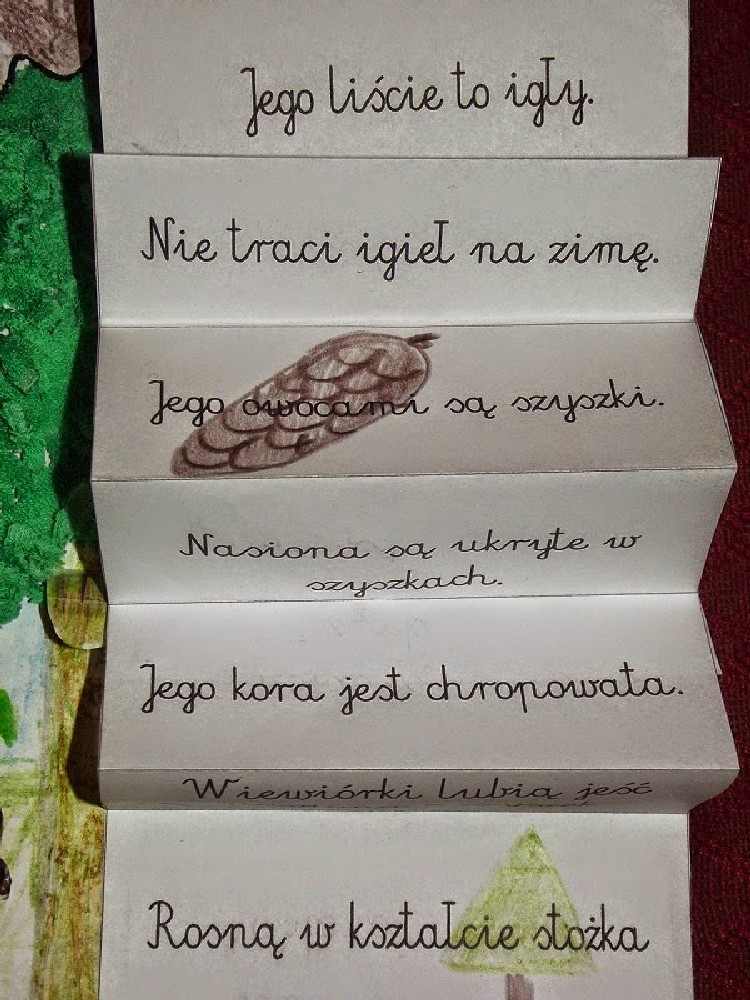 Jego liście to igły.
Nie traci igieł na zimę.
Jego owocami są szyszki.
Nasiona są ukryte w
szyszkach.
Jego kora jest chropowata.
Wiewiórki lubią jeść
Rosną w kształcie stożka